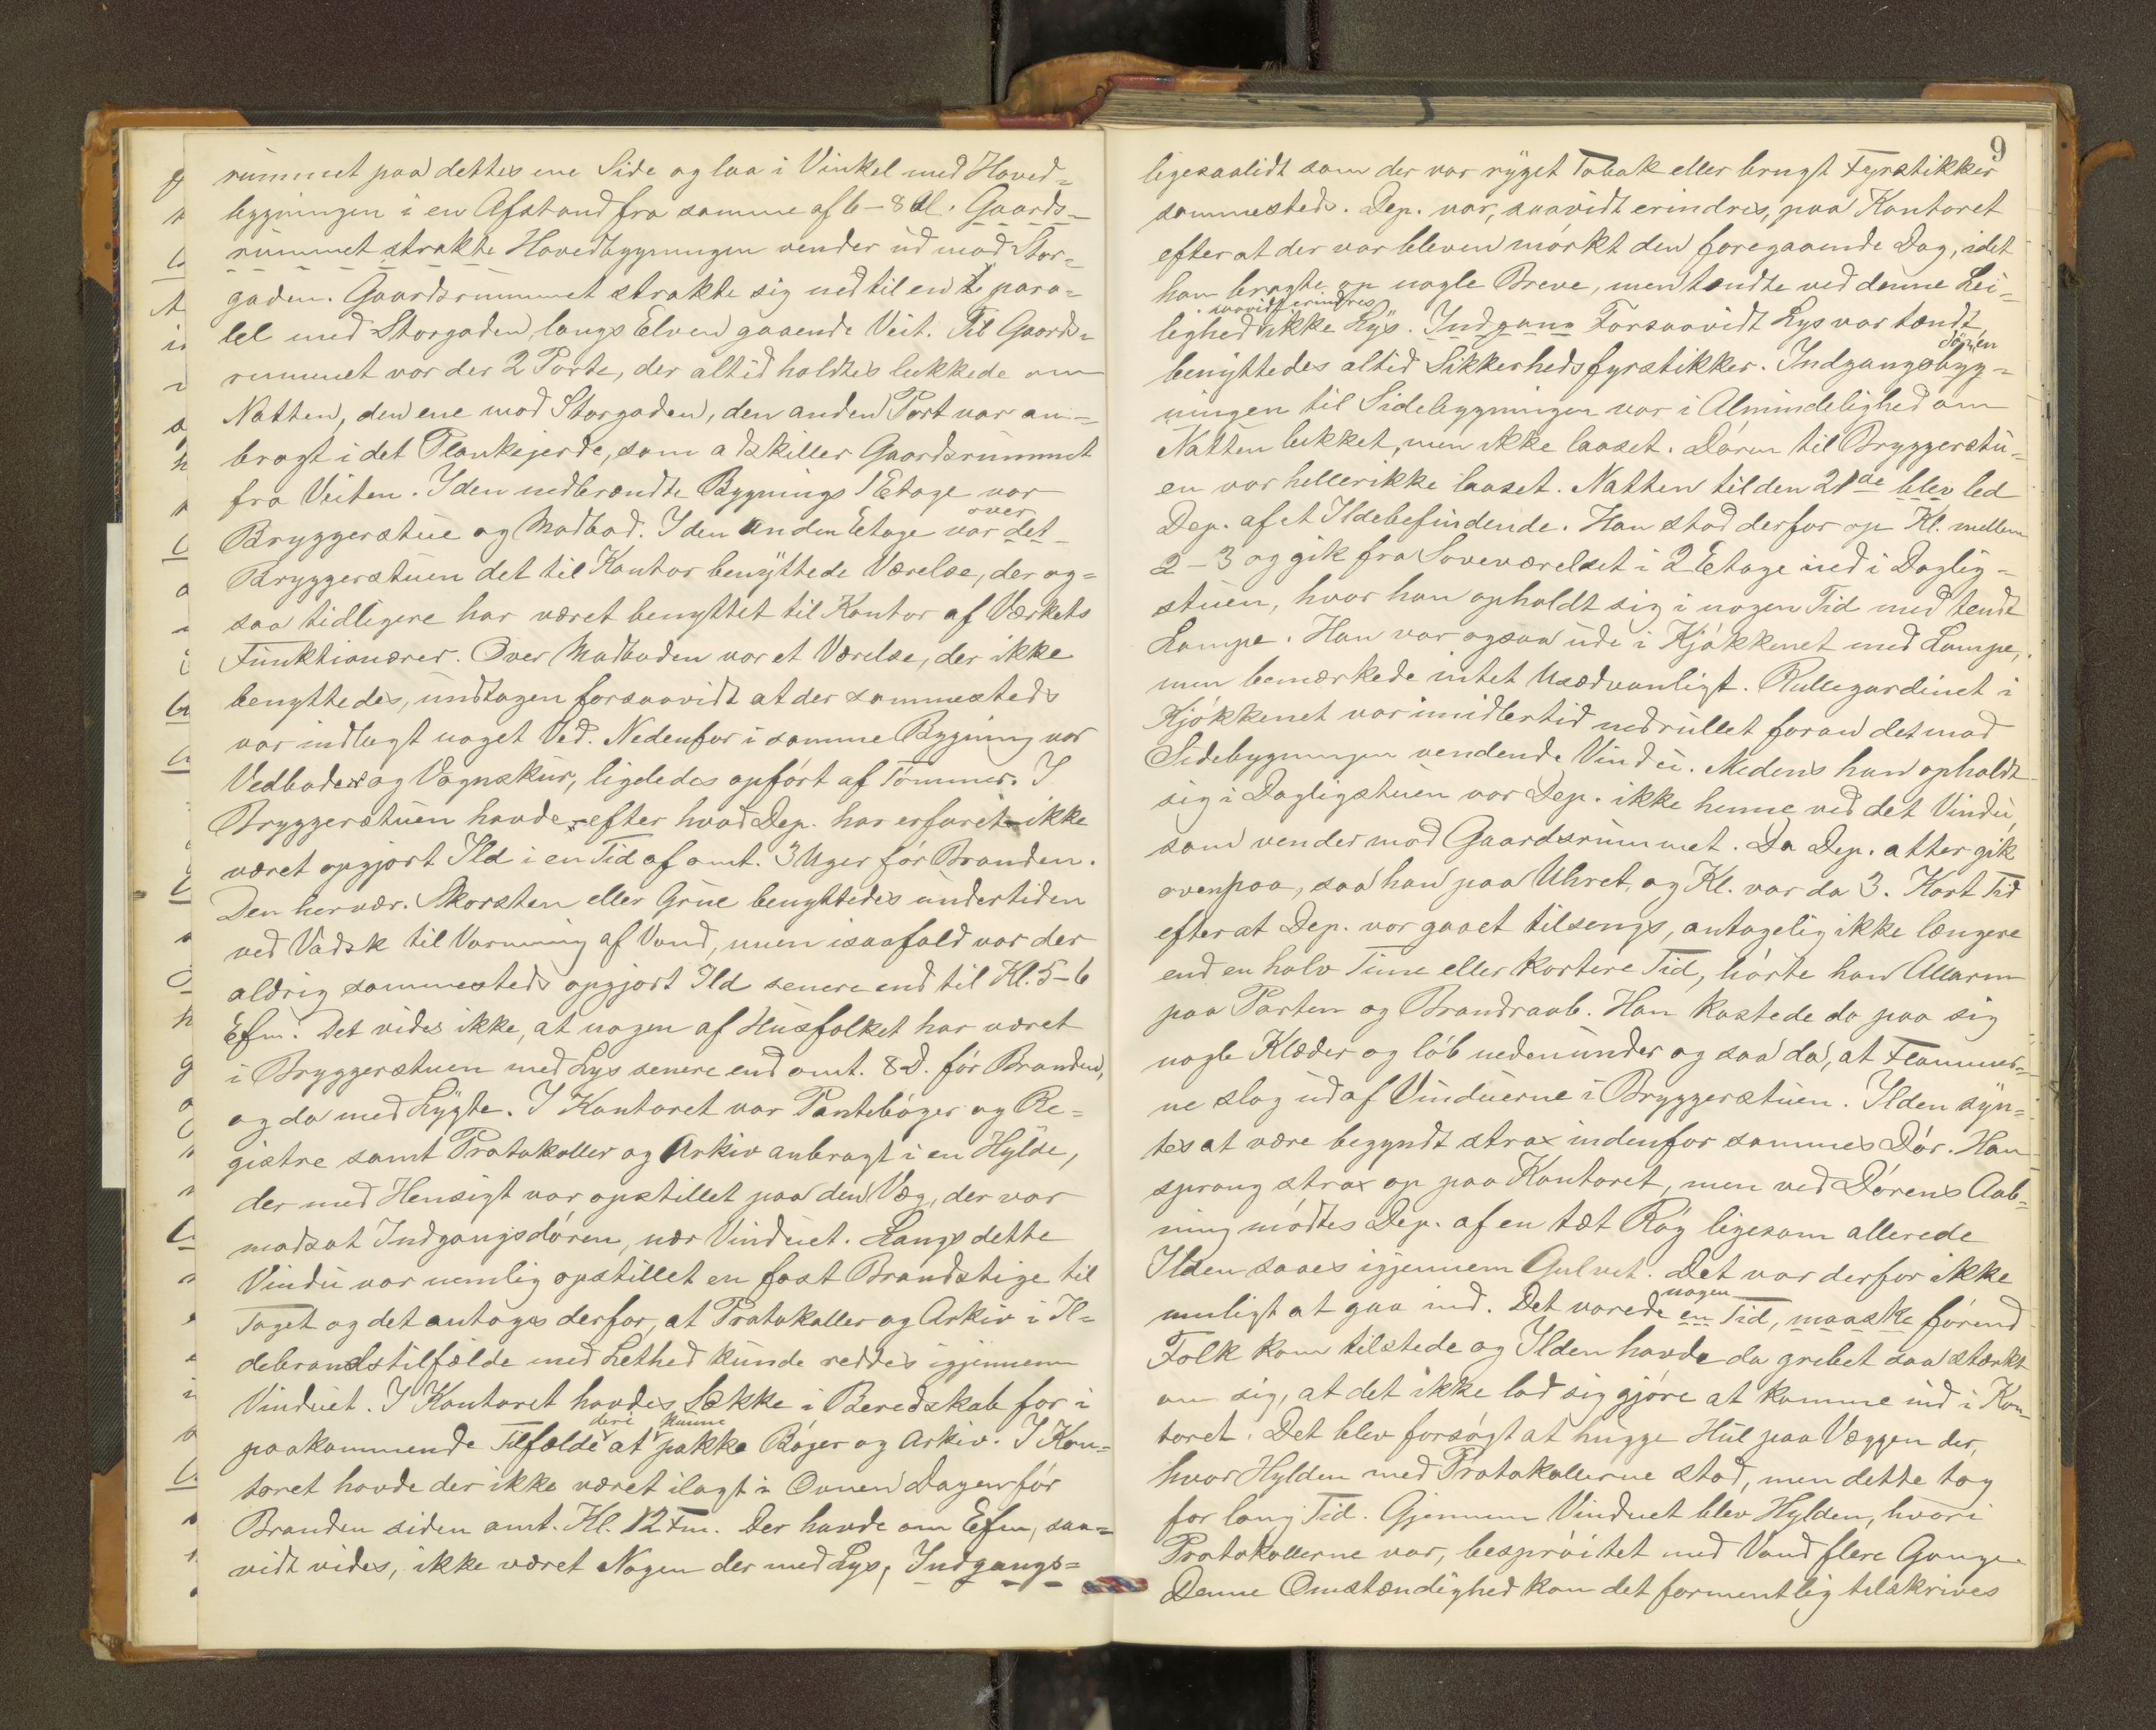 rummet paa dettes ene Side og laa i Vinkel med Hoved=
bygningen i en Afstand fra samme af 6-8 Al. Gaards=
rummet strakte Hovedbygningen vender ud mod Stor=
gaden. Gaardsrummet strakte sig ned til en para=
lel med Storgaden langs Elven gaaende Veit. Til Gaards=
rummet var der 2 Porte, der altid holdtes lukkede om
Natten, den ene mod Storgaden, den anden Port var an=
bragt i det Plankejerde, som adskiller Gaardsrummet
fra Veiten. I den nedbrændte Bygnings 1 Etage var
Bryggerstue og Madbod. I den anden Etage var det over
Bryggerstuen det til Kontor benyttede Værelse, der og=
saa tidligere har været benyttet til Kontor af Værkets
Funktionærer. Over Madboden var et Værelse, der ikke
benyttedes, undtagen forsaavidt at der sammesteds
var indlagt noget Ved. Nedenfor i samme Bygning var
Vedboder og Vognskur, ligeledes opført af Tømmer. I
Bryggerstuen havde efter hvad Dep. har erfaret ikke
været opgjort Ild i en Tid af omt. 3 Uger før Branden.
Den herver. Skorsten eller Grue benyttedes undertiden
ved Vadsk til Varming af Vand, men isaafald var der
aldrig sammesteds opgjort Ild senere end til Kl. 5-6
Efm. Det vides ikke, at nogen af Husfolket har været
i Bryggerstuen med Lys senere end omt. 8 D. før Branden,
og da med Lygte. I Kontoret var Pantebøger og Re=
gistre samt Protokoller og Arkiv anbragt i en Hylde,
der med Hensigt var opstillet paa den Væg, der var
modsat Indgangsdøren, nær Vinduet. Langs dette
Vindu var nemlig opstillet en fast Brandstige til
Taget og det antoges derfor, at Protokoller og Arkiv i Il=
debrandstilfælde med Lethed kunde reddes igjennem
Vinduet. I Kontoret havdes Sække i Beredskab for i
paakommende Tilfælde deri at kunne pakke Bøger og Arkiv. I Kon=
toret havde der ikke været ilagt i Ovnen Dagen før
Branden siden omt. Kl. 12 Fm. Der havde om Efm, saa=
vidt vides, ikke været Nogen der med Lys, Indgangs=
9
ligesaalidt som der var ryget Tobak eller brugt Fyrstikker
sammesteds. Dep. var, saavidt erindres, paa Kontoret
efter at der var bleven mørkt den foregaaende Dag, idet
han bragte op nogle Breve, men tændte ved denne Lei=
lighed saavidt erindres ikke Lys. Indgang Forsaavidt Lys var tændt,
benyttedes altid Sikkerhedsfyrstikker. Indgangsbyg= døren
ningen til Sidebygningen var i Almindelighed om
Natten lukket, men ikke laaset. Døren til Bryggerstu=
en var heller ikke laaset. Natten til den 21de blev led
Dep. af et Ildebefindende. Han stod derfor op Kl. mellem
2-3 og gik fra Soveværelset i 2 Etage ned i Daglig=
stuen, hvor han opholdt sig i nogen Tid med tendt
Lampe. Han var ogsaa ude i Kjøkkenet med Lampe,
men bemærkede intet Usædvanligt. Rullegardinet i
Kjøkkenet var imidlertid nedrullet foran det mod
Sidebygningen vendende Vindu. Medens han opholdt
sig i Dagligstuen var Dep. ikke henne ved det Vindu,
som vender mod Gaardsrummet. Da Dep. atter gik
ovenpaa, saa han paa Uhret, og Kl. var da 3. Kort Tid
efter at Dep. var gaaet tilsengs, antagelig ikke længere
end en halv Time eller kortere Tid, hørte han Allarm
paa Porten og Brandraab. Han kastede da paa sig
nogle Klæder og løb nedenunder og saa da, at Flammer=
ne slog ud af Vinduerne i Bryggerstuen. Ilden syn=
tes at være begyndt strax indenfor sammes Dør. Han
sprang strax op paa Kontoret, men ved Dørens Aab=
ning mødtes Dep. af en tæt Røg ligesom allerede
Ilden saaes igjennem Gulvet. Det var derfor ikke
muligt at gaa ind. Det varede en nogen Tid, maaske førend
Folk kom tilstede og Ilden havde da grebet saa stærkt
om sig, at det ikke lod sig gjøre at komme ind i Kon=
toret. Det blev forsøgt at hugge Hul paa Væggen der,
hvor Hylden med Protokollerne stod, men dette tog
for lang Tid. Gjennem Vinduet blev Hylden, hvori
Protokollerne var, besprøitet med Vand flere Gange.
Denne Omstændighed kan det formentlig tilskrives